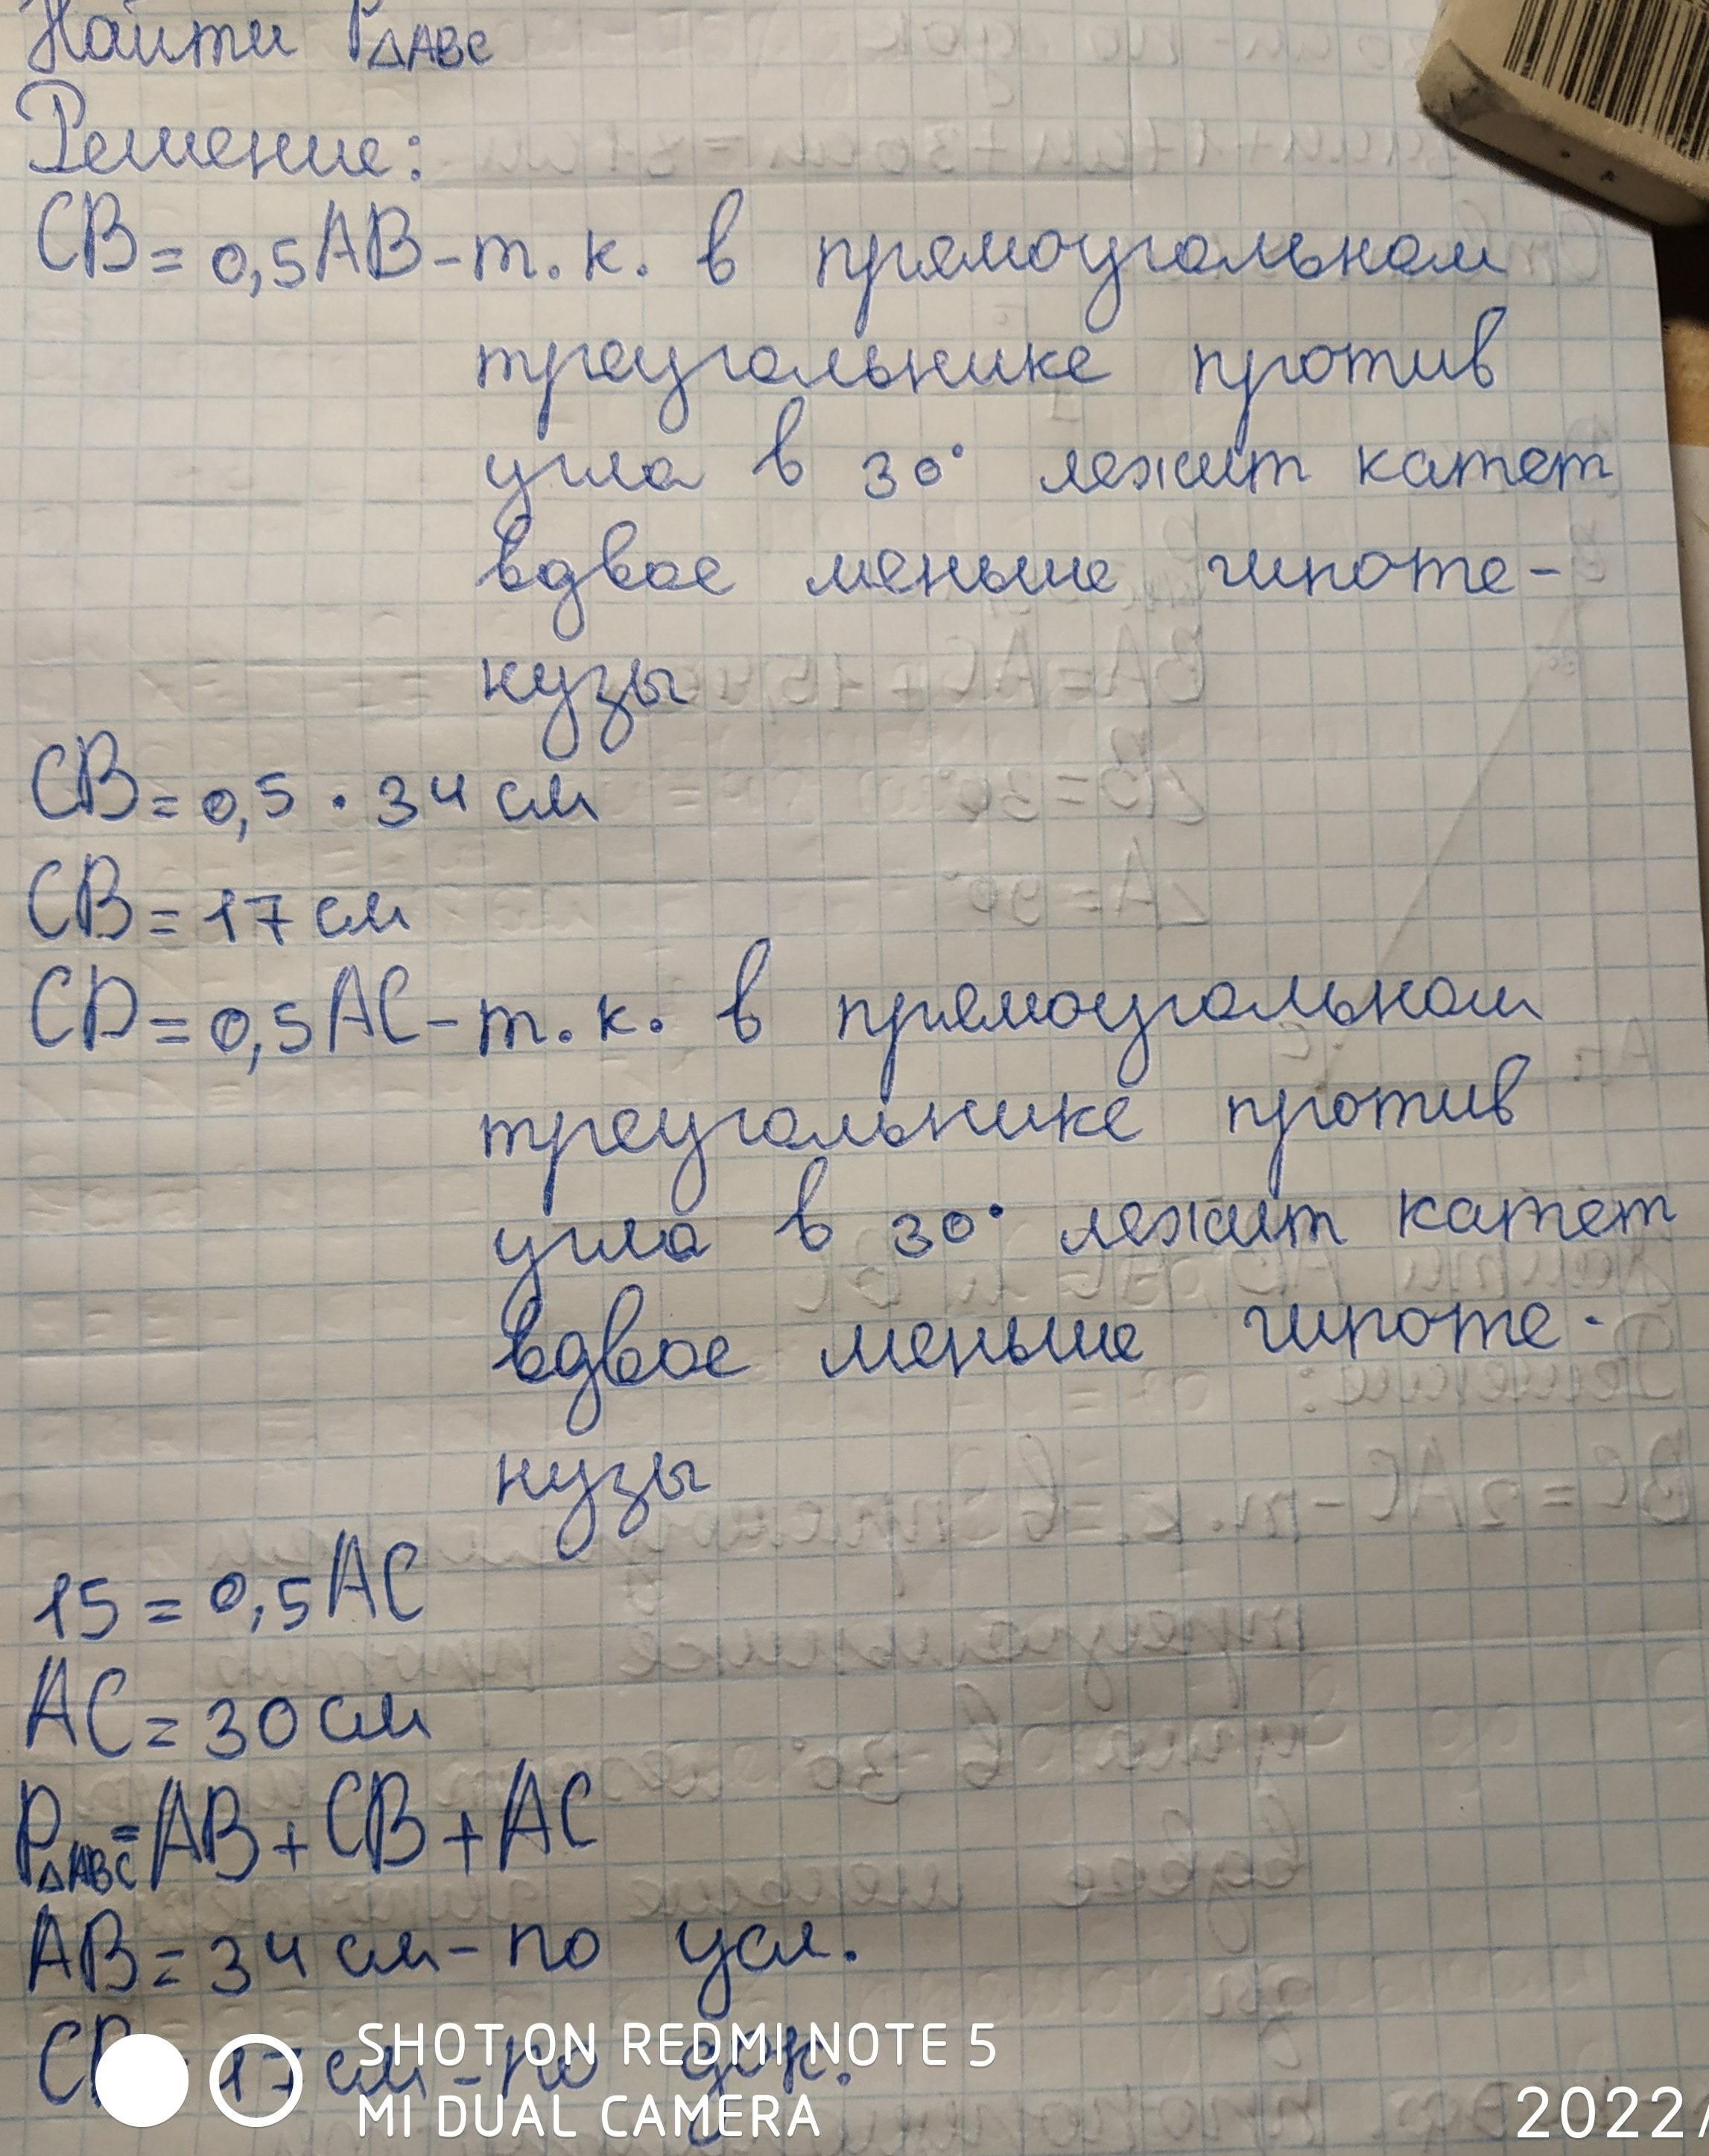 Найти P△ABC
Решение:
CB=0,5AB-т.к. в прямоугольном
треугольнике против
угла в 30° лежит катет
вдвое меньше гипоте-
нузы
CB=0,5·34см
CB=17см
CD=0,5AC-т.к. в прямоугольном
треугольнике против
угла в 30° лежит катет
вдвое меньше гипоте-
нузы
15=0,5AC
AC=30см
P△ABC=AB+CB+AC
AB=34см-по усл.
CB 17см-по док.
SHOT ON REDMI NOTE 5
MI DUAL CAMERA
2022/